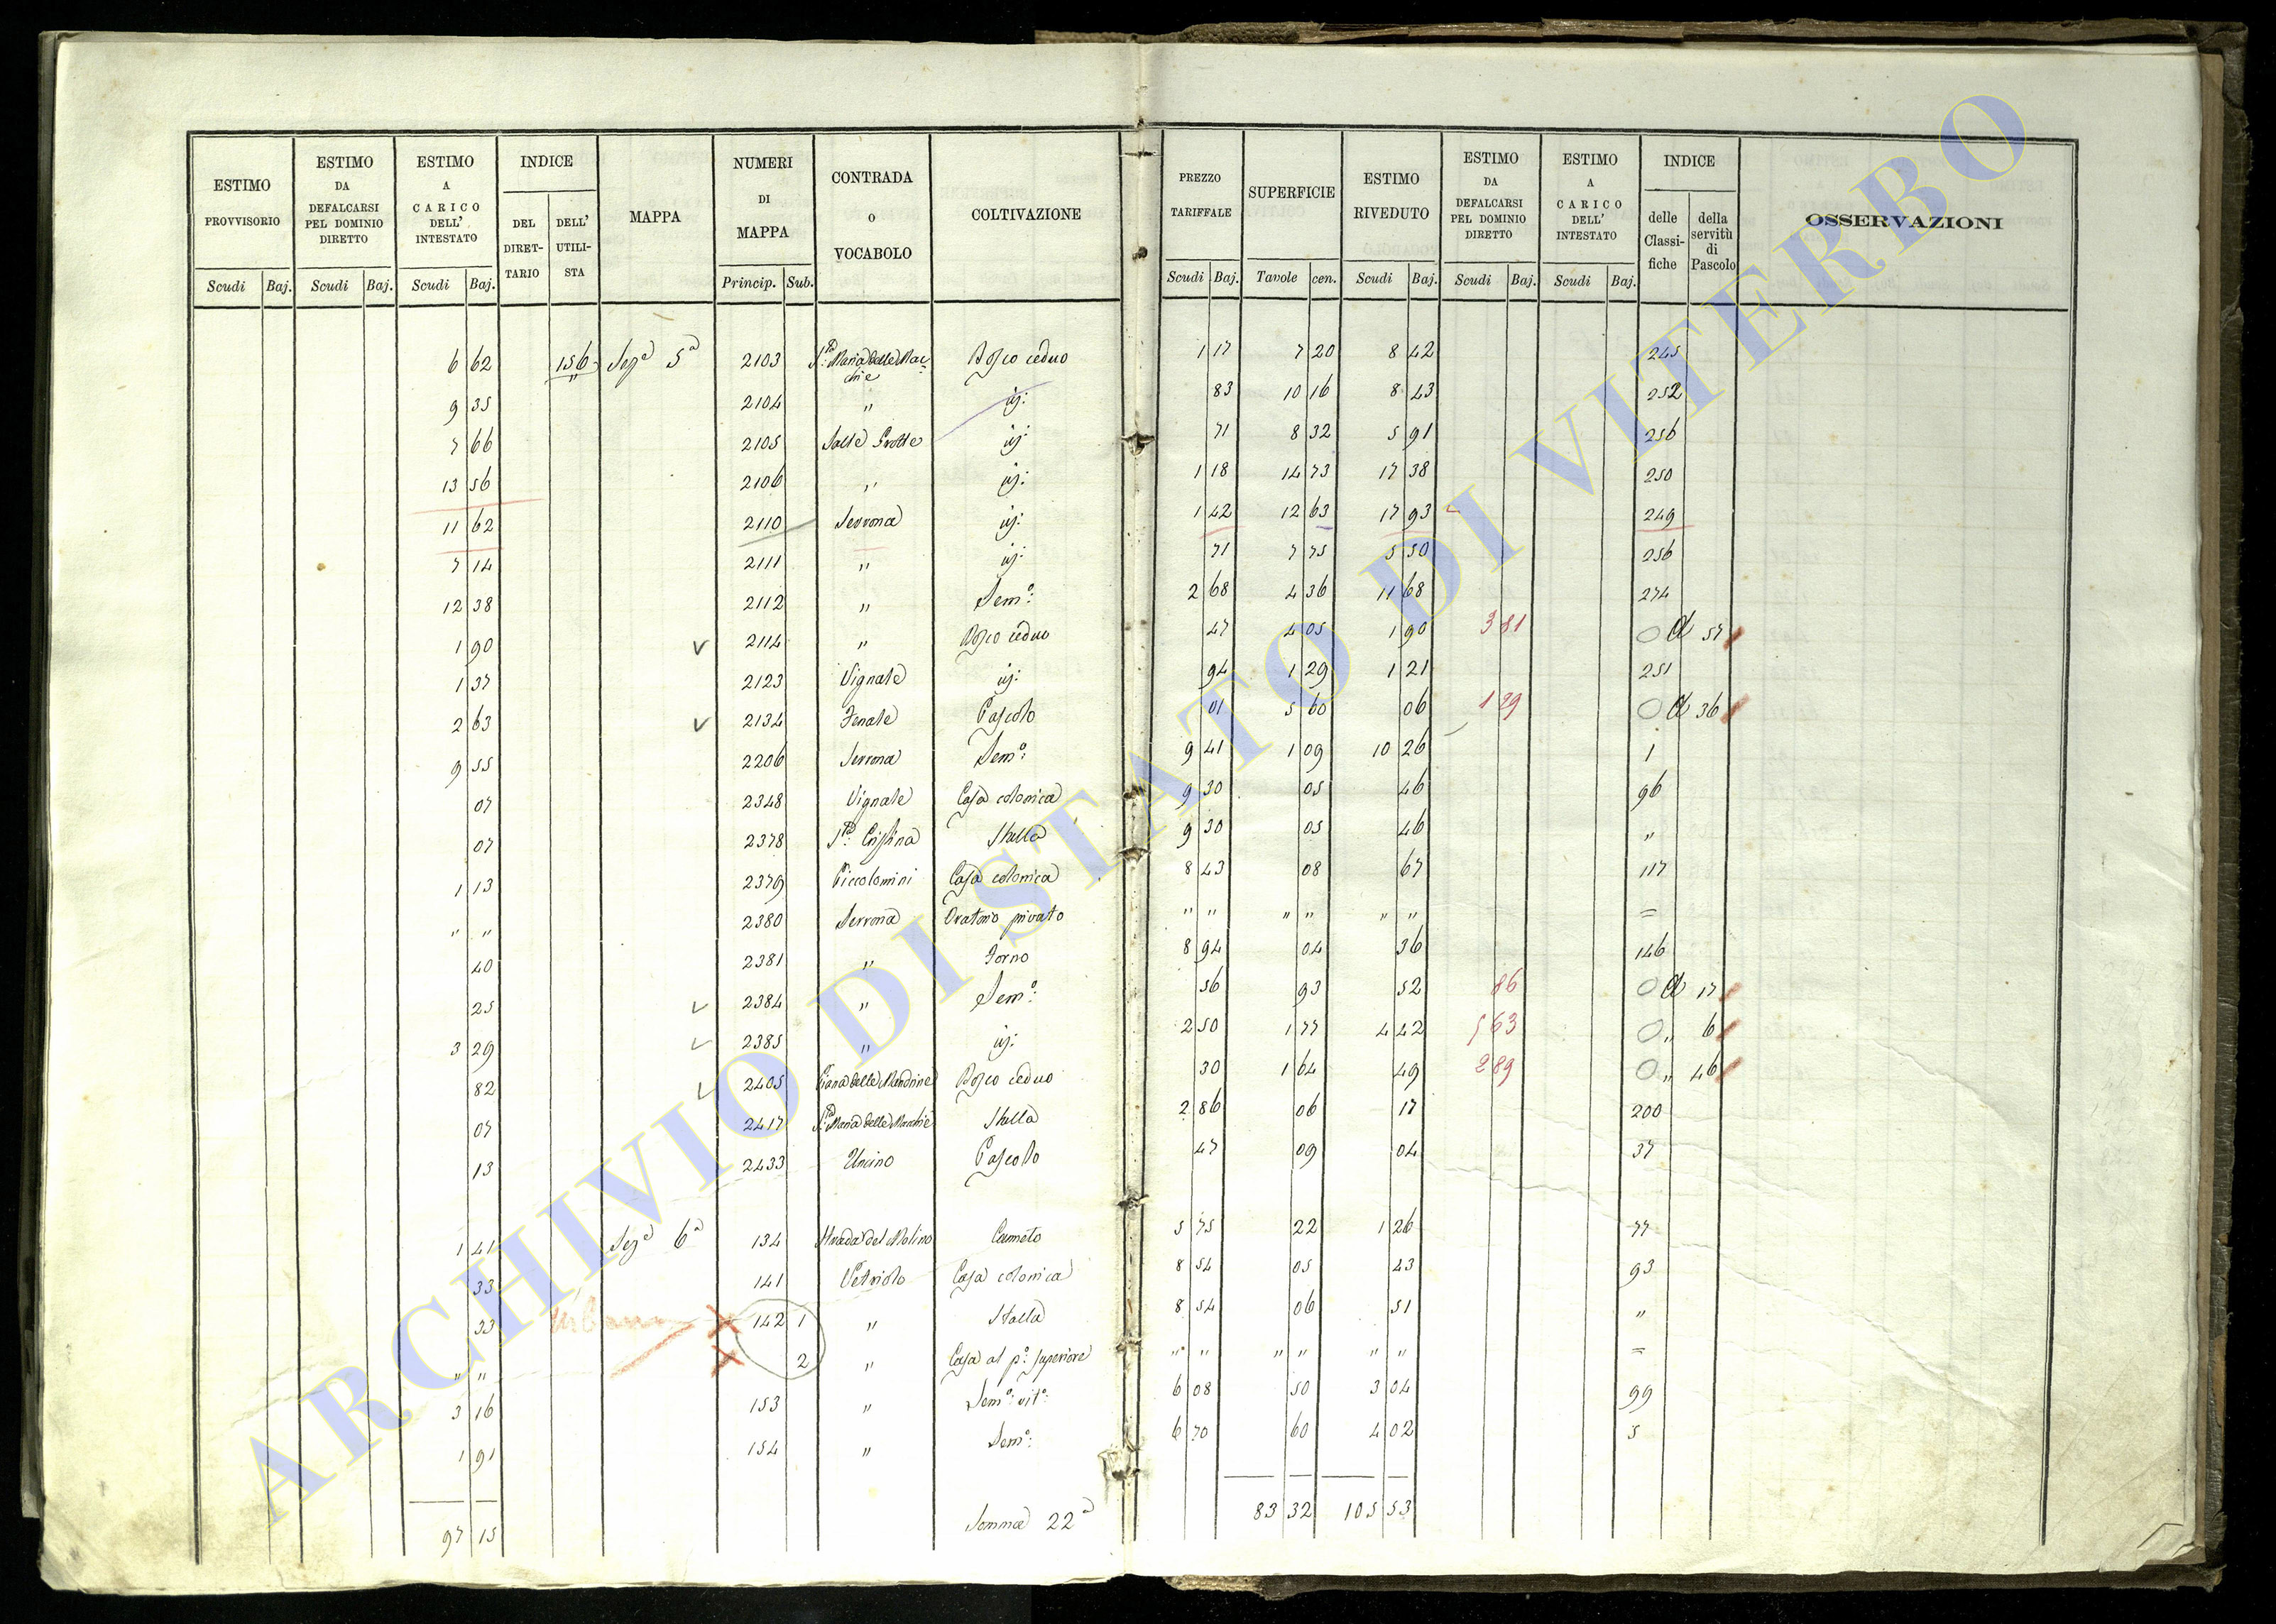 ESTIMO PROVVISORIO | ESTIMO DA DEFALCARSI PEL DOMINIO DIRETTO | ESTIMO A CARICO DELL' INTESTATO | INDICE | MAPPA | NUMERI DI MAPPA | CONTRADA O VOCABOLO | COLTIVAZIONE | PREZZO TARIFFALE | SUPERFICIE | ESTIMO RIVEDUTO | ESTIMO DA DEFALCARSI PEL DOMINIO DIRETTO | ESTIMO A CARICO DELL' INTESTATO | INDICE | OSSERVAZIONI
DEL DIRET-TARIO | DELL' UTILI-STA | delle Classi-fiche | della servitù di Pascolo
Scudi | Baj. | Scudi | Baj. | Scudi | Baj. | Princip. | Sub. | Scudi | Baj. | Tavole | cen. | Scudi | Baj. | Scudi | Baj. | Scudi | Baj.
6 62 | 156 | Seze 5a | 2103 | Sta: Maria delle Mac=chie | Bosco ceduo | 1 17 | 7 20 | 8 42 | 245
9 35 | 2104 | " | id: | 83 | 10 16 | 8 43 | 252
7 66 | 2105 | Grotte | id: | 71 | 8 32 | 5 91 | 256
13 56 | 2106 | " | id: | 1 18 | 14 73 | 17 38 | 250
11 62 | 2110 | Serrona | id: | 1 42 | 12 63 | 17 93 | 249
7 14 | 2111 | " | id: | 71 | 7 75 | 5 50 | 256
12 38 | 2112 | " | Semo: | 2 68 | 4 36 | 11 68 | 274
1 90 | 2114 | " | Bosco ceduo | 47 | 4 05 | 1 90 | 3 81 | O a 57
1 37 | 2123 | Vignale | id: | 94 | 1 29 | 1 21 | 251
2 63 | 2134 | Fenale | Pascolo | 01 | 5 60 | 06 | 1 29 | O a 36
9 55 | 2206 | Serrona | Semo: | 9 41 | 1 09 | 10 26 | 1
07 | 2348 | Vignale | Casa colonica | 9 30 | 05 | 46 | 96
07 | 2378 | Sta: Cristina | Stalla | 9 30 | 05 | 46 | "
1 13 | 2379 | Piccolomini | Casa colonica | 8 43 | 08 | 67 | 117
" " | 2380 | Serrona | Oratorio privato | " " | " " | " " | =
40 | 2381 | " | Forno | 8 94 | 04 | 36 | 146
25 | 2384 | " | Semo: | 56 | 93 | 52 | 86 | O a 17
3 29 | 2385 | " | id: | 2 50 | 1 77 | 4 42 | 5 63 | O " 6
82 | 2405 | Piana delle Mandrine | Bosco ceduo | 30 | 1 64 | 49 | 2 89 | O " 46
07 | 2417 | Sta: Maria delle Macchie | Stalla | 2 86 | 06 | 17 | 200
13 | 2433 | Uncino | Pascolo | 47 | 09 | 04 | 37
1 41 | Seze 6a | 134 | Strada del Molino | Canneto | 5 75 | 22 | 1 26 | 77
33 | 141 | Vetriolo | Casa colonica | 8 54 | 05 | 43 | 93
33 | Urbano | 142 1 | " | Stalla | 8 54 | 06 | 51 | "
" " | 2 | " | Casa al po: superiore | " " | " " | " " | =
3 16 | 153 | " | Semo: vito: | 6 08 | 50 | 3 04 | 99
1 91 | 154 | " | Semo: | 6 70 | 60 | 4 02 | 5
97 15 | Somma 22a | 83 32 | 105 53
ARCHIVIO DI STATO DI VITERBO